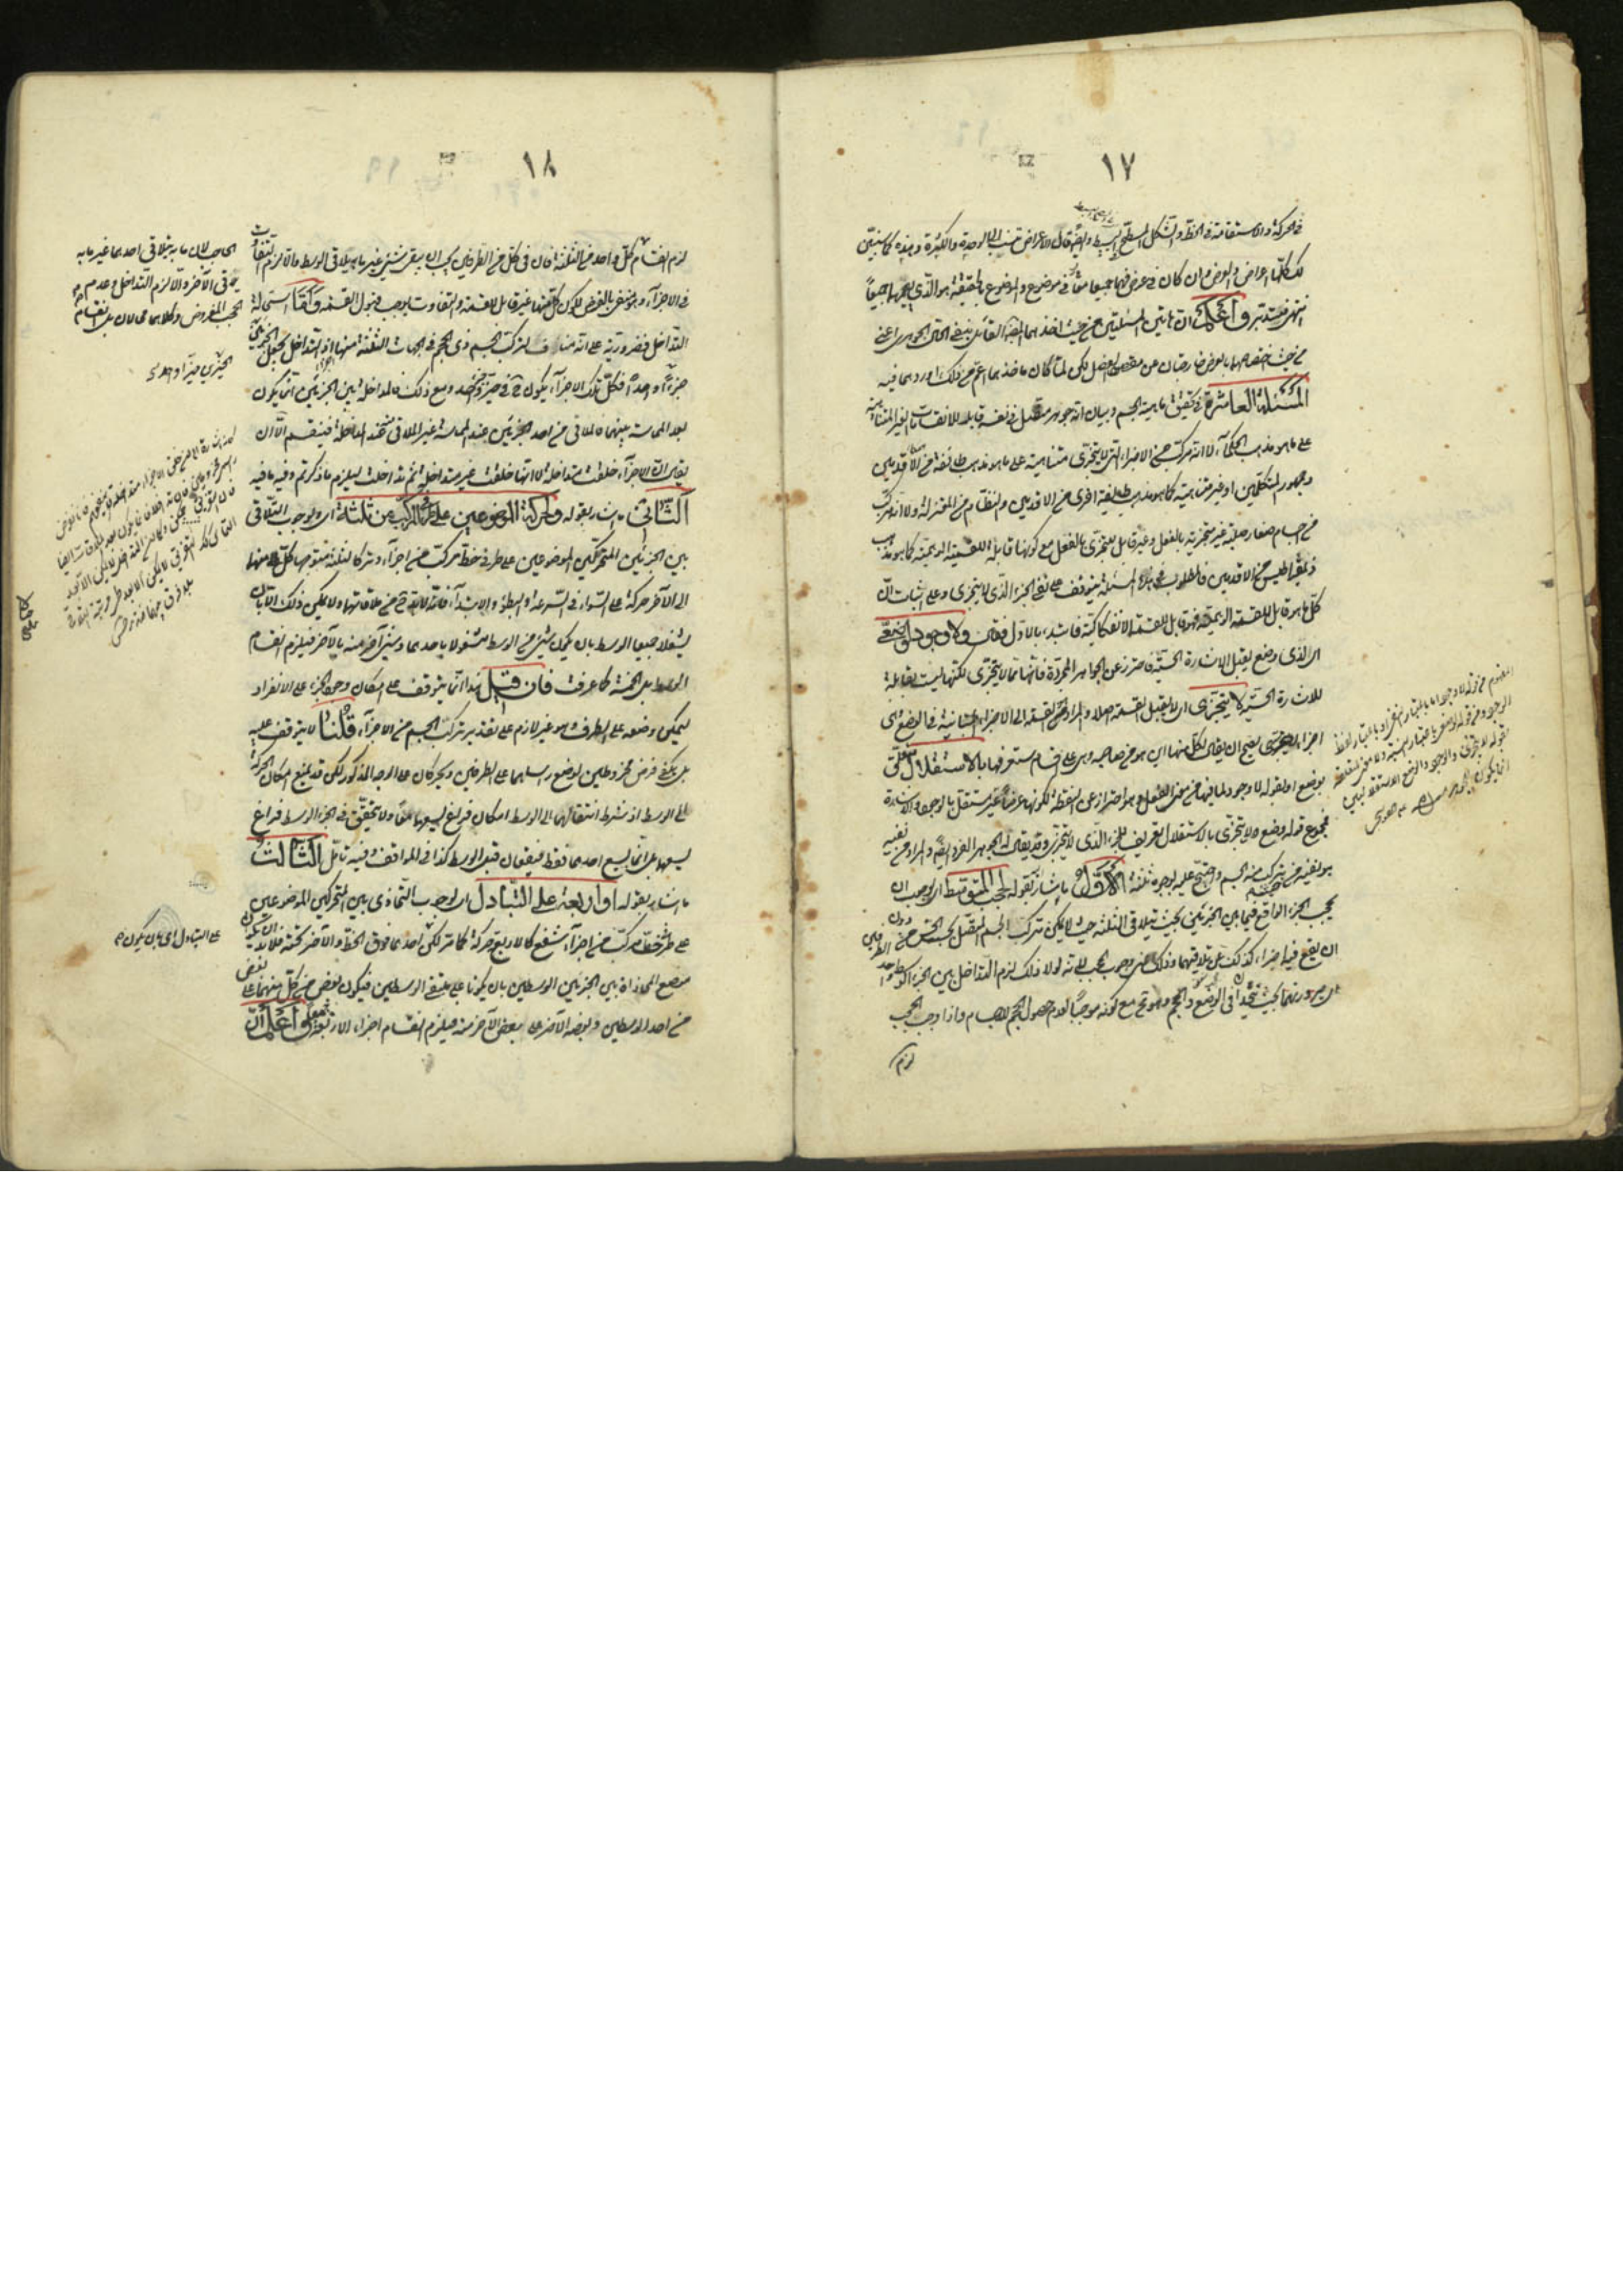 ١٧
في الحركة والاستقامة في الخط والشكل للسطح البسيط وايضا قال الاعراض تنسب الى الوحدة والكثرة وهذه كما تبين
لك كلها اعراض والعرض وان كان في عرض فهما جميعا معا في موضوع والموضوع بالحقيقة هو الذي يقيمهما جميعا
انتهى فليتدبر واعلم ان هاتين المسئلتين من حيث
من حيث اختصاصهما بالعرض خارجتان عن مقصد الفصل لكن لما كان ماخذهما اعم من ذلك اورد هما فيه
المسئلة العاشرة في تحقيق ماهية الجسم وبيان انه جوهر متصل في نفسه قابل للانقسامات الغير المتناهية
على ما هو مذهب الحكماء لا انه مركب من الاجزاء التي لا يتجزى متناهية على ما هو مذهب طائفة من الاقدمين
وجمهور المتكلمين او غير متناهية كما هو مذهب طائفة اخرى من الاقدمين والنظام من المعتزلة ولا انه مركب
من اجسام صغار صلبة غير متجزية بالفعل وغير قابل للتجزى بالفعل مع كونها قابلة للقسمة الوهمية كما هو مذهب
ذيمقراطيس من الاقدمين فالمطلوب في هذه المسئلة يتوقف على نفي الجزء الذي لا يتجزى وعلى اثبات ان
كل ما هو قابل للقسمة الوهمية فهو قابل للقسمة الانفكاكية فاشار بالاول فقال ولا وجود لوضعي
اى الذي وضع يقبل الاشارة الحسية احترز عن الجواهر المجردة فانها مما لا يتجزى لكنها ليست بقابلة
للاشارة الحسية لا يتجزى اى لا يقبل القسمة اصلا والمراد من القسمة الى الاجزاء المتباينة في الوضع اى
اجزاء يصح ان يقال لكل منها اين هو من صاحبه وهى على اقسام ستعرفها بالاستقلال متعلق
بوضع او بقوله لا وجود لما فيها من معنى الفعل وهو احتراز عن النقطة لكونها عرضا غير مستقل بالوجود والاشارة
فمجموع قوله وضع ولا يتجزى بالاستقلال تعريف للجزء الذي لا يتجزى وقد يقال له الجوهر الفرد ايضا والمراد من نفيه
هو نفيه من تركب منه الجسم واحتج عليه بوجوه ثلثة الاول ما اشار بقوله لحجب المتوسط اى لوجوب ان
يحجب الجزء الواقع فيما بين الجزئين بحيث يتلاقى الثلثة حيث لا يمكن تركب الجسم المتصل بحسب الحس من دون
ان يقع فيه اجزاء كذلك عن تلاقيهما وذلك اعنى وجوب الحجب لانه لولا ذلك لزم التداخل بين الجزء الوسط واحد الطرفين
اى صيرورتهما بحيث يتحدا في الوضع والحجم وهو مح مع كونه موجبا لعدم حصول الحجم للاجسام واذا وجب الحجب
لزم
١٨
لزم انقسام كل واحد من الثلثة فان في كل من الطرفين يجب ان يبقى شئ غير ما به يلاقى الوسط والا لزم التفاوت
في الاجزاء وهو منفي بالفرض لكون كل منها غير قابل للقسمة والتفاوت يوجب قبول القسمة واما استحالة
التداخل فضرورية على انه مناف لتركب الجسم ذى الحجم في الجهات الثلثة منها اذ التداخل يجعل الجزئين
جزءا واحدا فكل تلك الاجزاء يكون ح في حيز جزء واحد ومع ذلك فالمداخلة بين الجزئين انما يكون
بعد المماسة بينهما فالملاقى من احد الجزئين عند المماسة غير الملاقى منه عند المداخلة فينقسم الا ان
يقال ان الاجزاء خلقت متداخلة لا انها خلقت غير متداخلة ثم تداخلت ليلزم ما ذكرتم وفيه ما فيه
الثاني ما اشار بقوله ولحركة الموضوعين على طرفي المركب من ثلثة اى ولوجوب التلاقى
بين الجزئين المتحركين الموضوعين على طرفي خط مركب من اجزاء وتر كالثلثة متوجها كل منهما
الى الآخر حركة على السواء في السرعة والبطؤ والابتداء فانه لا بد ح من ملاقاتهما ولا يمكن ذلك الا بان
يشغلا جميعا الوسط بان يكون شئ من الوسط مشغولا باحدهما وشئ آخر منه بالآخر فيلزم انقسام
الوسط بل الخمسة كما عرفت فان قيل هذا انما يتوقف على امكان وجود الجزء على الانفراد
ليمكن وضعه على الطرف وهو غير لازم على تقدير تركب الجسم من الاجزاء قلنا لا يتوقف عليه
بل يكفى فرض مخروطين لوضع رأسيهما على الطرفين ويحركان على الوجه المذكور لكن قد يمنع امكان الحركة
الى الوسط اذ شرط انتقالهما الى الوسط امكان فراغ يسعهما معا ولا يتحقق في الجزء الوسط فراغ
يسعهما بل انما يسع احدهما فقط فيقفان قبل الوسط كذا في المواقف وفيه تأمل الثالث
ما اشار بقوله او اربعة على التبادل اى لوجوب التحاذى بين المتحركين الموضوعين
على طرفي خط مركب من اجزاء شفع كالاربعة حركة كما مر لكن احدهما فوق الخط والآخر تحته فلا بد ان يكون
موضع المحاذاة بين الجزئين الوسطين بان يكونا على ملتقى الوسطين فيكون بعض من كل منهما على بعض
من احد الوسطين وبعضه الآخر على بعض الآخر منه فيلزم انقسام اجزاء الاربعة واعلم ان
الحاجب لان ما به يلاقى احدهما غير ما به
يلاقى الآخر والا لزم التداخل وعدم
الحجب المفروض وكلاهما محالان بل انقسام
على التبادل اى بان يكون